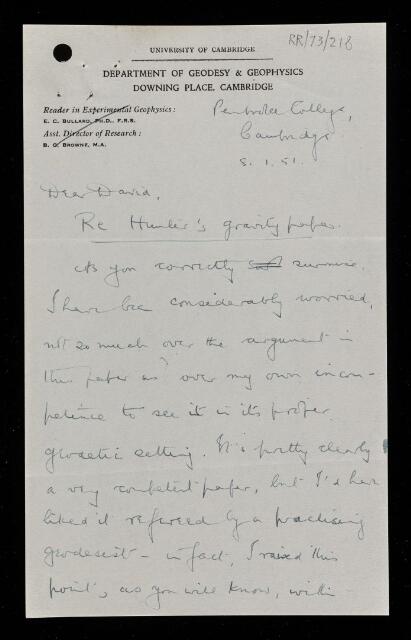 RR/73/218
UNIVERSITY OF CAMBRIDGE
DEPARTMENT OF GEODESY & GEOPHYSICS
DOWNING PLACE, CAMBRIDGE
Reader in Experimental Geophysics:
E. C. BULLARD, PH.D., F.R.S.
Asst. Director of Research:
B. C. BROWNE, M.A.
Pembroke College,
Cambridge
8.1.51.
Dear David,
Re Hunter's gravity paper.
As you correctly surmise,
I have been considerably worried,
not so much over the argument in
this paper as over my own incom-
petence to see it in its proper
geodetic setting. It is pretty clearly
a very competent paper, but I'd have
liked it refereed by a practising
geodesist - in fact, I raised this
point, as you will know, with